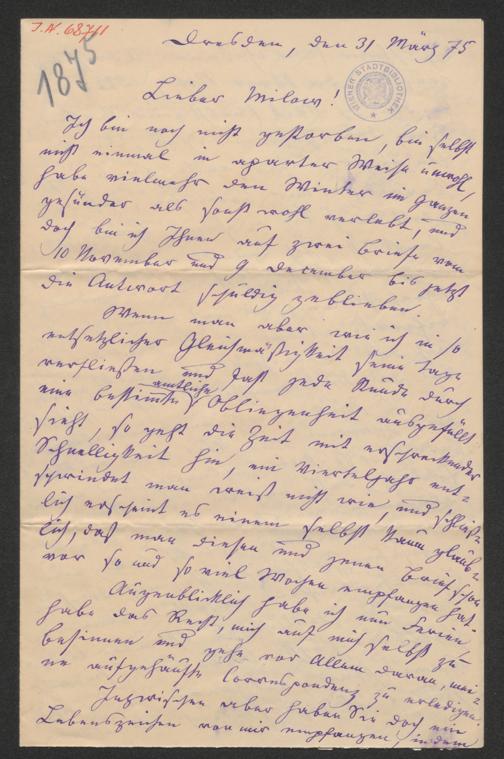 I.N. 68711
1875
Dresden, den 31 März 75
WIENER STADTBIBLIOTHEK
Lieber Milow!
Ich bin noch nicht gestorben, bin selbst
nicht einmal in aparter Weise unwohl,
habe vielmehr den Winter im Ganzen
gesünder als sonst wohl verlebt, und
doch bin ich Ihnen auf zwei Briefe vom
10 November und 9 December bis jetzt
die Antwort schuldig geblieben.
Wenn man aber, wie ich in so
entsetzlicher Gleichmäßigkeit seine Tage
verfließen und fast jede Stunde durch
eine bestimmte amtliche Obliegenheit ausgefüllt
sieht, so geht die Zeit mit erschreckender
Schnelligkeit hin, ein Vierteljahr ent-
schwindet man weiß nicht wie, und schließ-
lich erscheint es einem selbst kaum glaub-
lich, daß man diesen und jenen Brief schon
vor so und so viel Wochen empfangen hat.
Augenblicklich habe ich nun Ferien,
habe das Recht, mich auf mich selbst zu
besinnen und gehe vor Allem daran, mei-
ne aufgehäufte Correspondenz zu erledigen.
Inzwischen aber haben Sie doch ein
Lebenszeichen von mir empfangen, indem